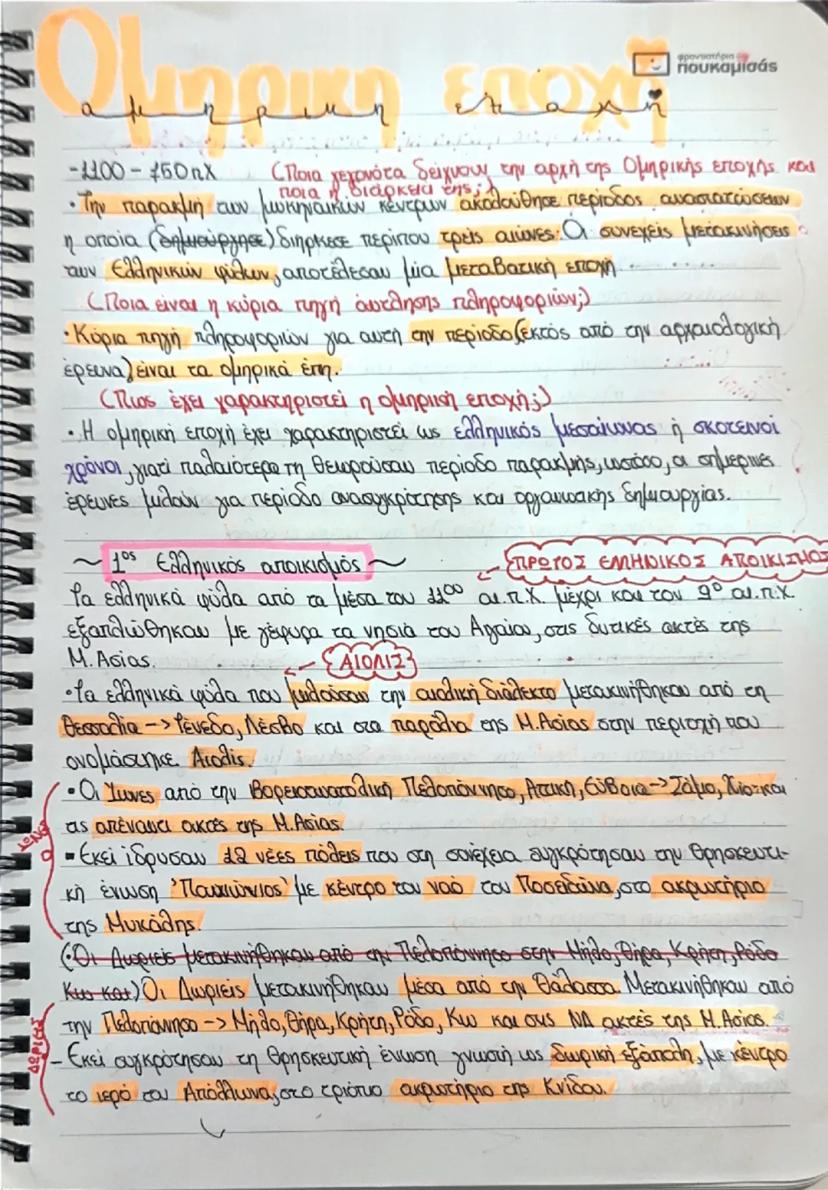 Ομηρικη εποχη
φροντιστήρια
πουκαμισάς
ομηρικη εποχή
-1100 - 750 π.Χ (Ποια γεγονότα δείχνουν την αρχή της Ομηρικής εποχής και
ποια η διάρκεια της;)
• Την παρακμή των μυκηναϊκών κέντρων ακολούθησε περίοδος αναστατώσεων
η οποία (δημιούργησε) διήρκεσε περίπου τρεις αιώνες. Οι συνεχείς μετακινήσεις
των Ελληνικών φύλων, αποτέλεσαν μία μεταβατική εποχή
(Ποια είναι η κύρια πηγή άντλησης πληροφοριών;)
• Κύρια πηγή πληροφοριών για αυτή την περίοδο (εκτός από την αρχαιολογική
έρευνα) είναι τα ομηρικά έπη.
(Πως έχει χαρακτηριστεί η ομηρική εποχή;)
• Η ομηρική εποχή έχει χαρακτηριστεί ως ελληνικός μεσαίωνας ή σκοτεινοί
χρόνοι, γιατί παλαιότερα τη θεωρούσαν περίοδο παρακμής, ωστόσο, οι σημερινές
έρευνες μιλούν για περίοδο ανασυγκρότησης και οργανωτικής δημιουργίας.
~ 1ος Ελληνικός αποικισμός ~
← ΠΡΩΤΟΣ ΕΛΛΗΝΙΚΟΣ ΑΠΟΙΚΙΣΜΟΣ
Τα ελληνικά φύλα από τα μέσα του 11ου αι.π.Χ. μέχρι και τον 9ο αι.π.Χ.
εξαπλώθηκαν με γέφυρα τα νησιά του Αιγαίου, στις δυτικές ακτές της
Μ.Ασίας.
← ΑΙΟΛΙΣ
• Τα ελληνικά φύλα που μιλούσαν την αιολική διάλεκτο μετακινήθηκαν από τη
Θεσσαλία -> Τένεδο, Λέσβο και στα παράλια της Μ.Ασίας στην περιοχή που
ονομάστηκε Αιολίς.
ΙΩΝΕΣ
• Οι Ίωνες από την Βορειοανατολική Πελοπόννησο, Αττική, Εύβοια -> Σάμο, Χίο και
τις απέναντι ακτές της Μ.Ασίας.
- Εκεί ίδρυσαν 12 νέες πόλεις που στη συνέχεια συγκρότησαν την θρησκευτι-
κή ένωση 'Πανιώνιος' με κέντρο τον ναό του Ποσειδώνα, στο ακρωτήριο
της Μυκάλης.
(Οι Δωριείς μετακινήθηκαν από την Πελοπόννησο στην Μήλο, Θήρα, Κρήτη, Ρόδο
Κως και) Οι Δωριείς μετακινήθηκαν μέσα από την θάλασσα. Μετακινήθηκαν από
ΔΩΡΙΕΙΣ
την Πελοπόννησο -> Μήλο, Θήρα, Κρήτη, Ρόδο, Κω και στις ΝΔ ακτές της Μ.Ασίας.
- Εκεί συγκρότησαν τη θρησκευτική ένωση γνωστή ως δωρική εξάπολη, με κέντρο
το ιερό του Απόλλωνα, στο τριόπιο ακρωτήριο της Κνίδου.